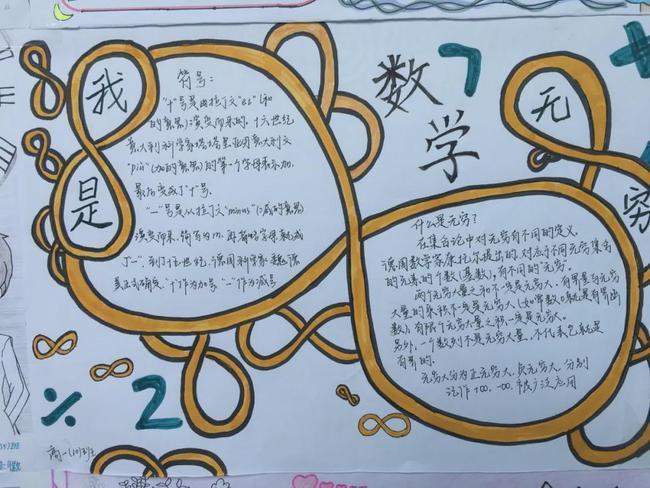 我
是
数
学
无
穷
7
2
÷
符号：
"+"号是由拉丁文"et"(和
的意思)演变而来的。十六世纪
意大利科学家塔塔里亚用意大利文
"più"(加的意思)的第一个字母表示加,
最后变成了"十"号。
"一"号是从拉丁文"minus"(减的意思)
演变而来,简写为m,再省略字母,就成
了"一"。到了十五世纪,德国科学家魏德
美正式确定:"十"作为加号,"一"作为减号
什么是无穷?
在集合论中对无穷有不同的定义。
德国数学家康托尔提出的,对应于不同无穷集合
的元素的个数(基数),有不同的"无穷"。
两个无穷大量之和不一定是无穷大,有界量与无穷
大量的乘积不一定是无穷大(如常数0就是有界函
数),有限个无穷大量之积一定是无穷大。
另外,一个数列不是无穷大量,不代表它就是
有界的。
无穷大分为正无穷大,负无穷大,分别
记作+∞,-∞,
应用
高一(10)班